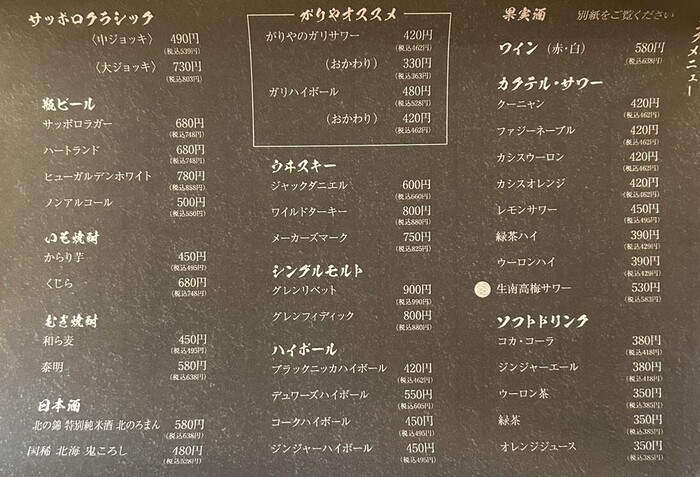 サッポロクラシック
〈中ジョッキ〉 490円
(税込539円)
〈大ジョッキ〉 730円
(税込803円)
瓶ビール
サッポロラガー 680円
(税込748円)
ハートランド 680円
(税込748円)
ヒューガルデンホワイト 780円
(税込858円)
ノンアルコール 500円
(税込550円)
いも焼酎
からり芋 450円
(税込495円)
くじら 680円
(税込748円)
むぎ焼酎
和ら麦 450円
(税込495円)
泰明 580円
(税込638円)
日本酒
北の錦 特別純米酒 北のろまん 580円
(税込638円)
国稀 北海 鬼ころし 480円
(税込528円)
がりやオススメ
がりやのガリサワー 420円
(税込462円)
(おかわり) 330円
(税込363円)
ガリハイボール 480円
(税込528円)
(おかわり) 420円
(税込462円)
ウヰスキー
ジャックダニエル 600円
(税込660円)
ワイルドターキー 800円
(税込880円)
メーカーズマーク 750円
(税込825円)
シングルモルト
グレンリベット 900円
(税込990円)
グレンフィディック 800円
(税込880円)
ハイボール
ブラックニッカハイボール 420円
(税込462円)
デュワーズハイボール 550円
(税込605円)
コークハイボール 450円
(税込495円)
ジンジャーハイボール 450円
(税込495円)
果実酒 別紙をご覧ください
ワイン (赤・白) 580円
(税込638円)
カクテル・サワー
クーニャン 420円
(税込462円)
ファジーネーブル 420円
(税込462円)
カシスウーロン 420円
(税込462円)
カシスオレンジ 420円
(税込462円)
レモンサワー 450円
(税込495円)
緑茶ハイ 390円
(税込429円)
ウーロンハイ 390円
(税込429円)
生南高梅サワー 530円
(税込583円)
ソフトドリンク
コカ・コーラ 380円
(税込418円)
ジンジャーエール 380円
(税込418円)
ウーロン茶 350円
(税込385円)
緑茶 350円
(税込385円)
オレンジジュース 350円
(税込385円)
メニュー